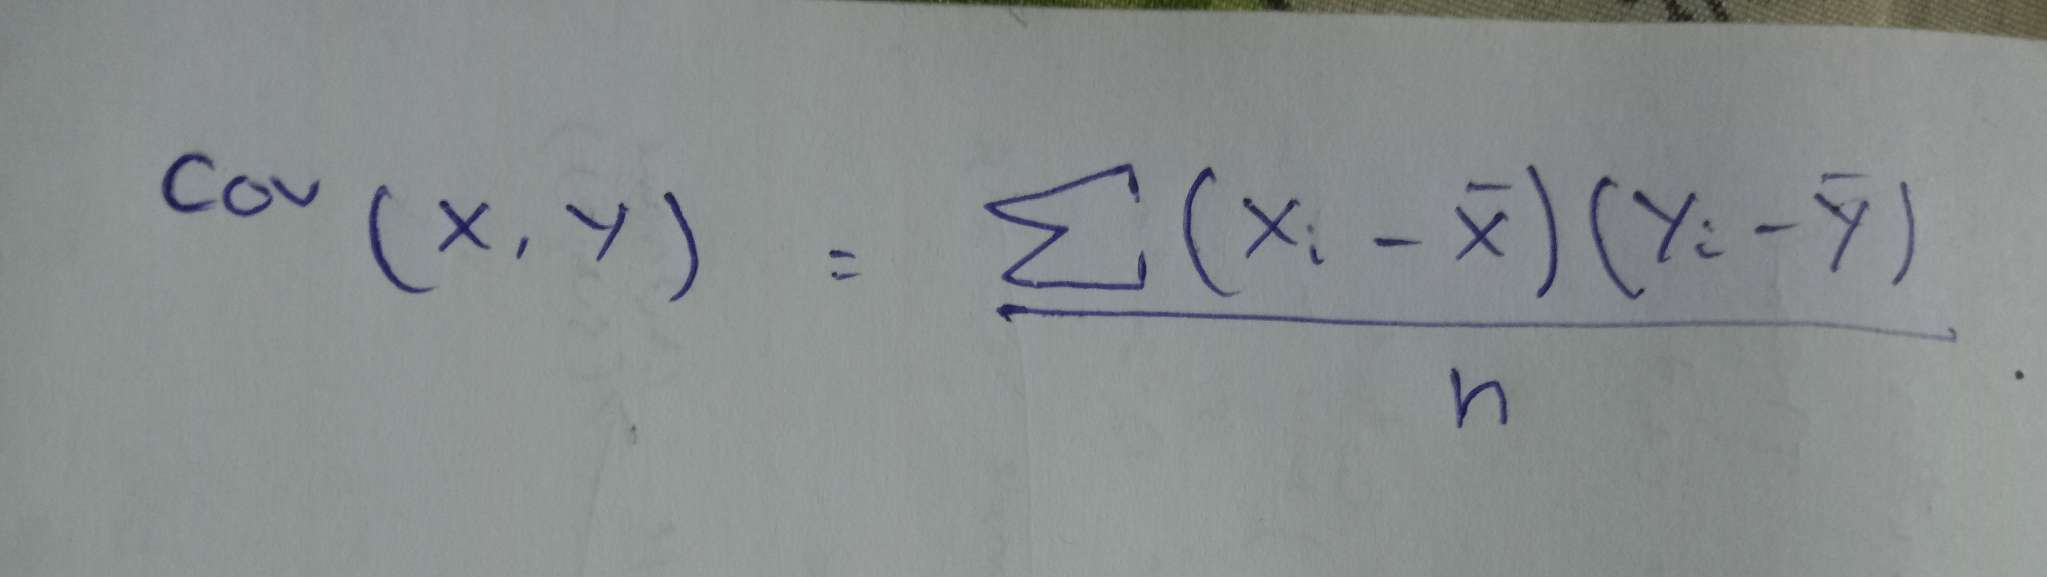 Cov (X, Y) = ∑ (Xi - X̄) (Yi - Ȳ)
n